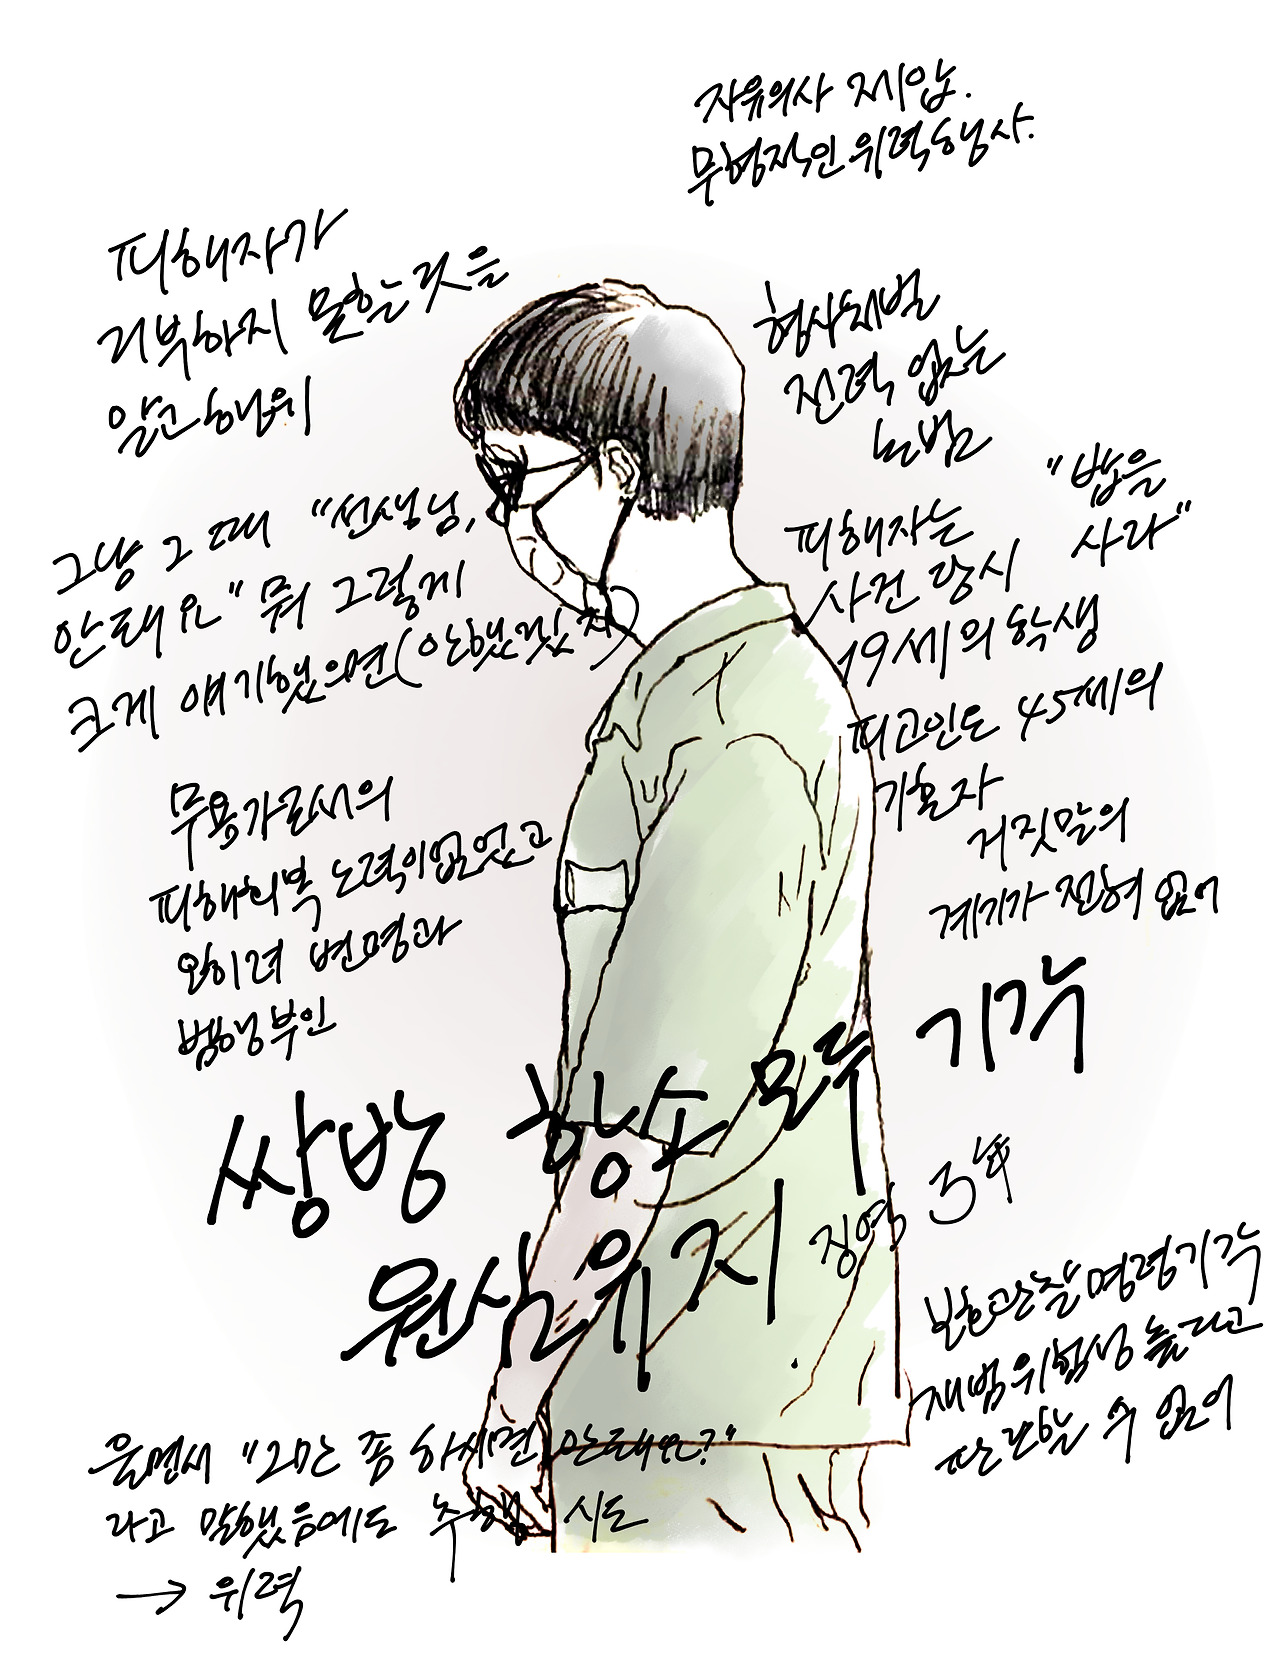 자유의사 제압.
무형적인 위력행사.
피해자가
거부하지 못하는 것을
알고 행위
형사처벌
전력 없는
초범
그냥 그 때 "선생님,
안돼요" 뭐 그렇게
크게 얘기했으면(안했겠지)
"밥을
사라"
피해자는
사건 당시
19세의 학생
피고인은 45세의
기혼자
거짓말의
계기가 전혀 없어
무용가로서의
피해회복 노력이 없었고
오히려 변명과
범행부인
쌍방 항소 모두 기각
원심유지
징역 3年
보호관찰명령기각
재범위험성 높다고
판단할 수 없어
울면서 "그만 좀 하시면 안돼요?"
라고 말했음에도 추행 시도
→ 위력